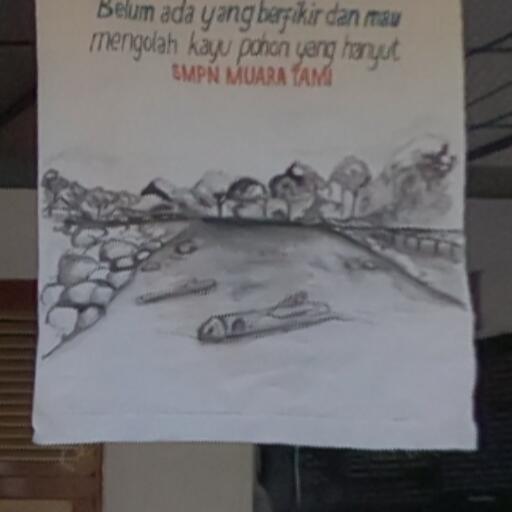 Belum ada yang berfikir dan mau
mengolah kayu pohon yang hanyut
SMPN MUARA TAMI